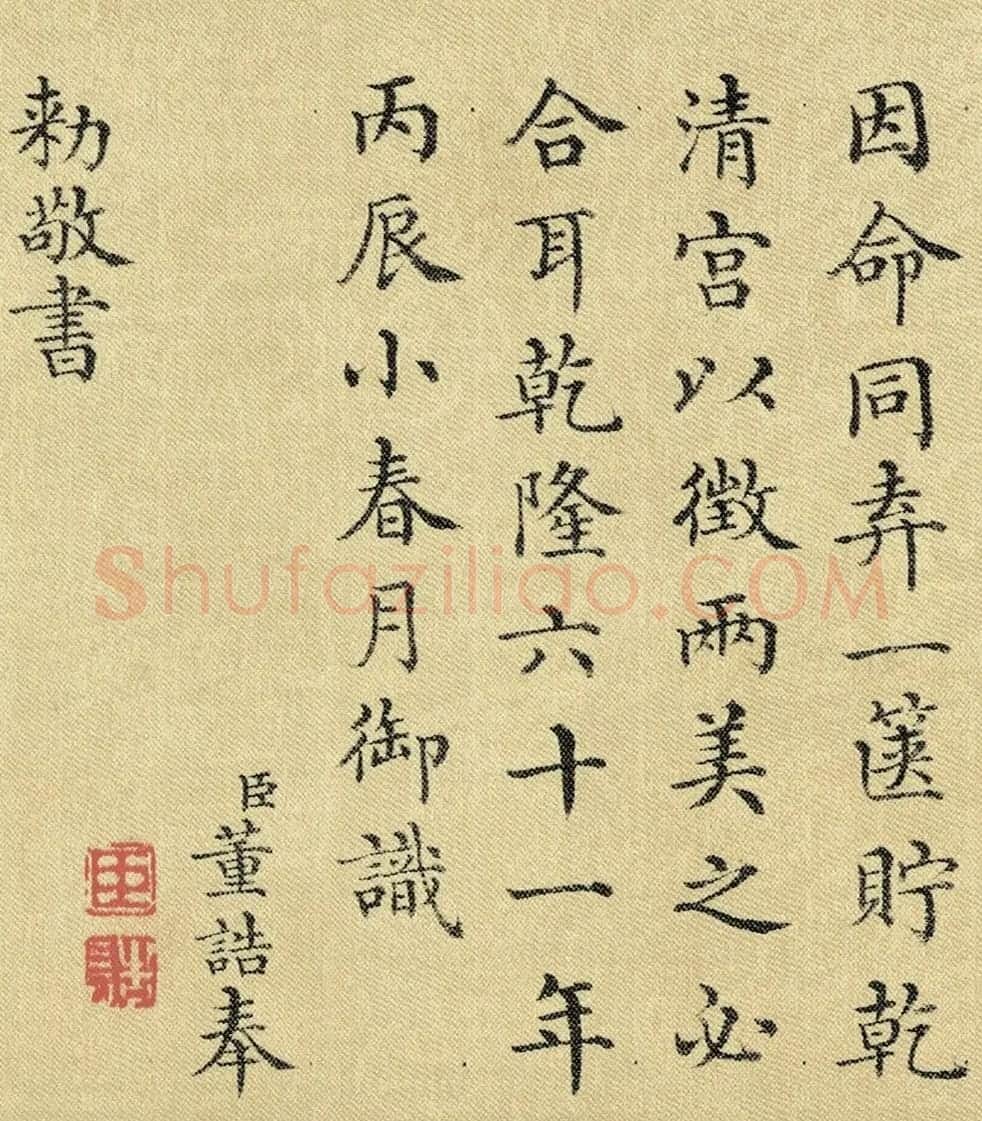 因命同弆一篋貯乾
清宮以徵兩美之必
合耳乾隆六十一年
丙辰小春月御識
臣董誥奉
勅敬書
Shufaziliao.COM